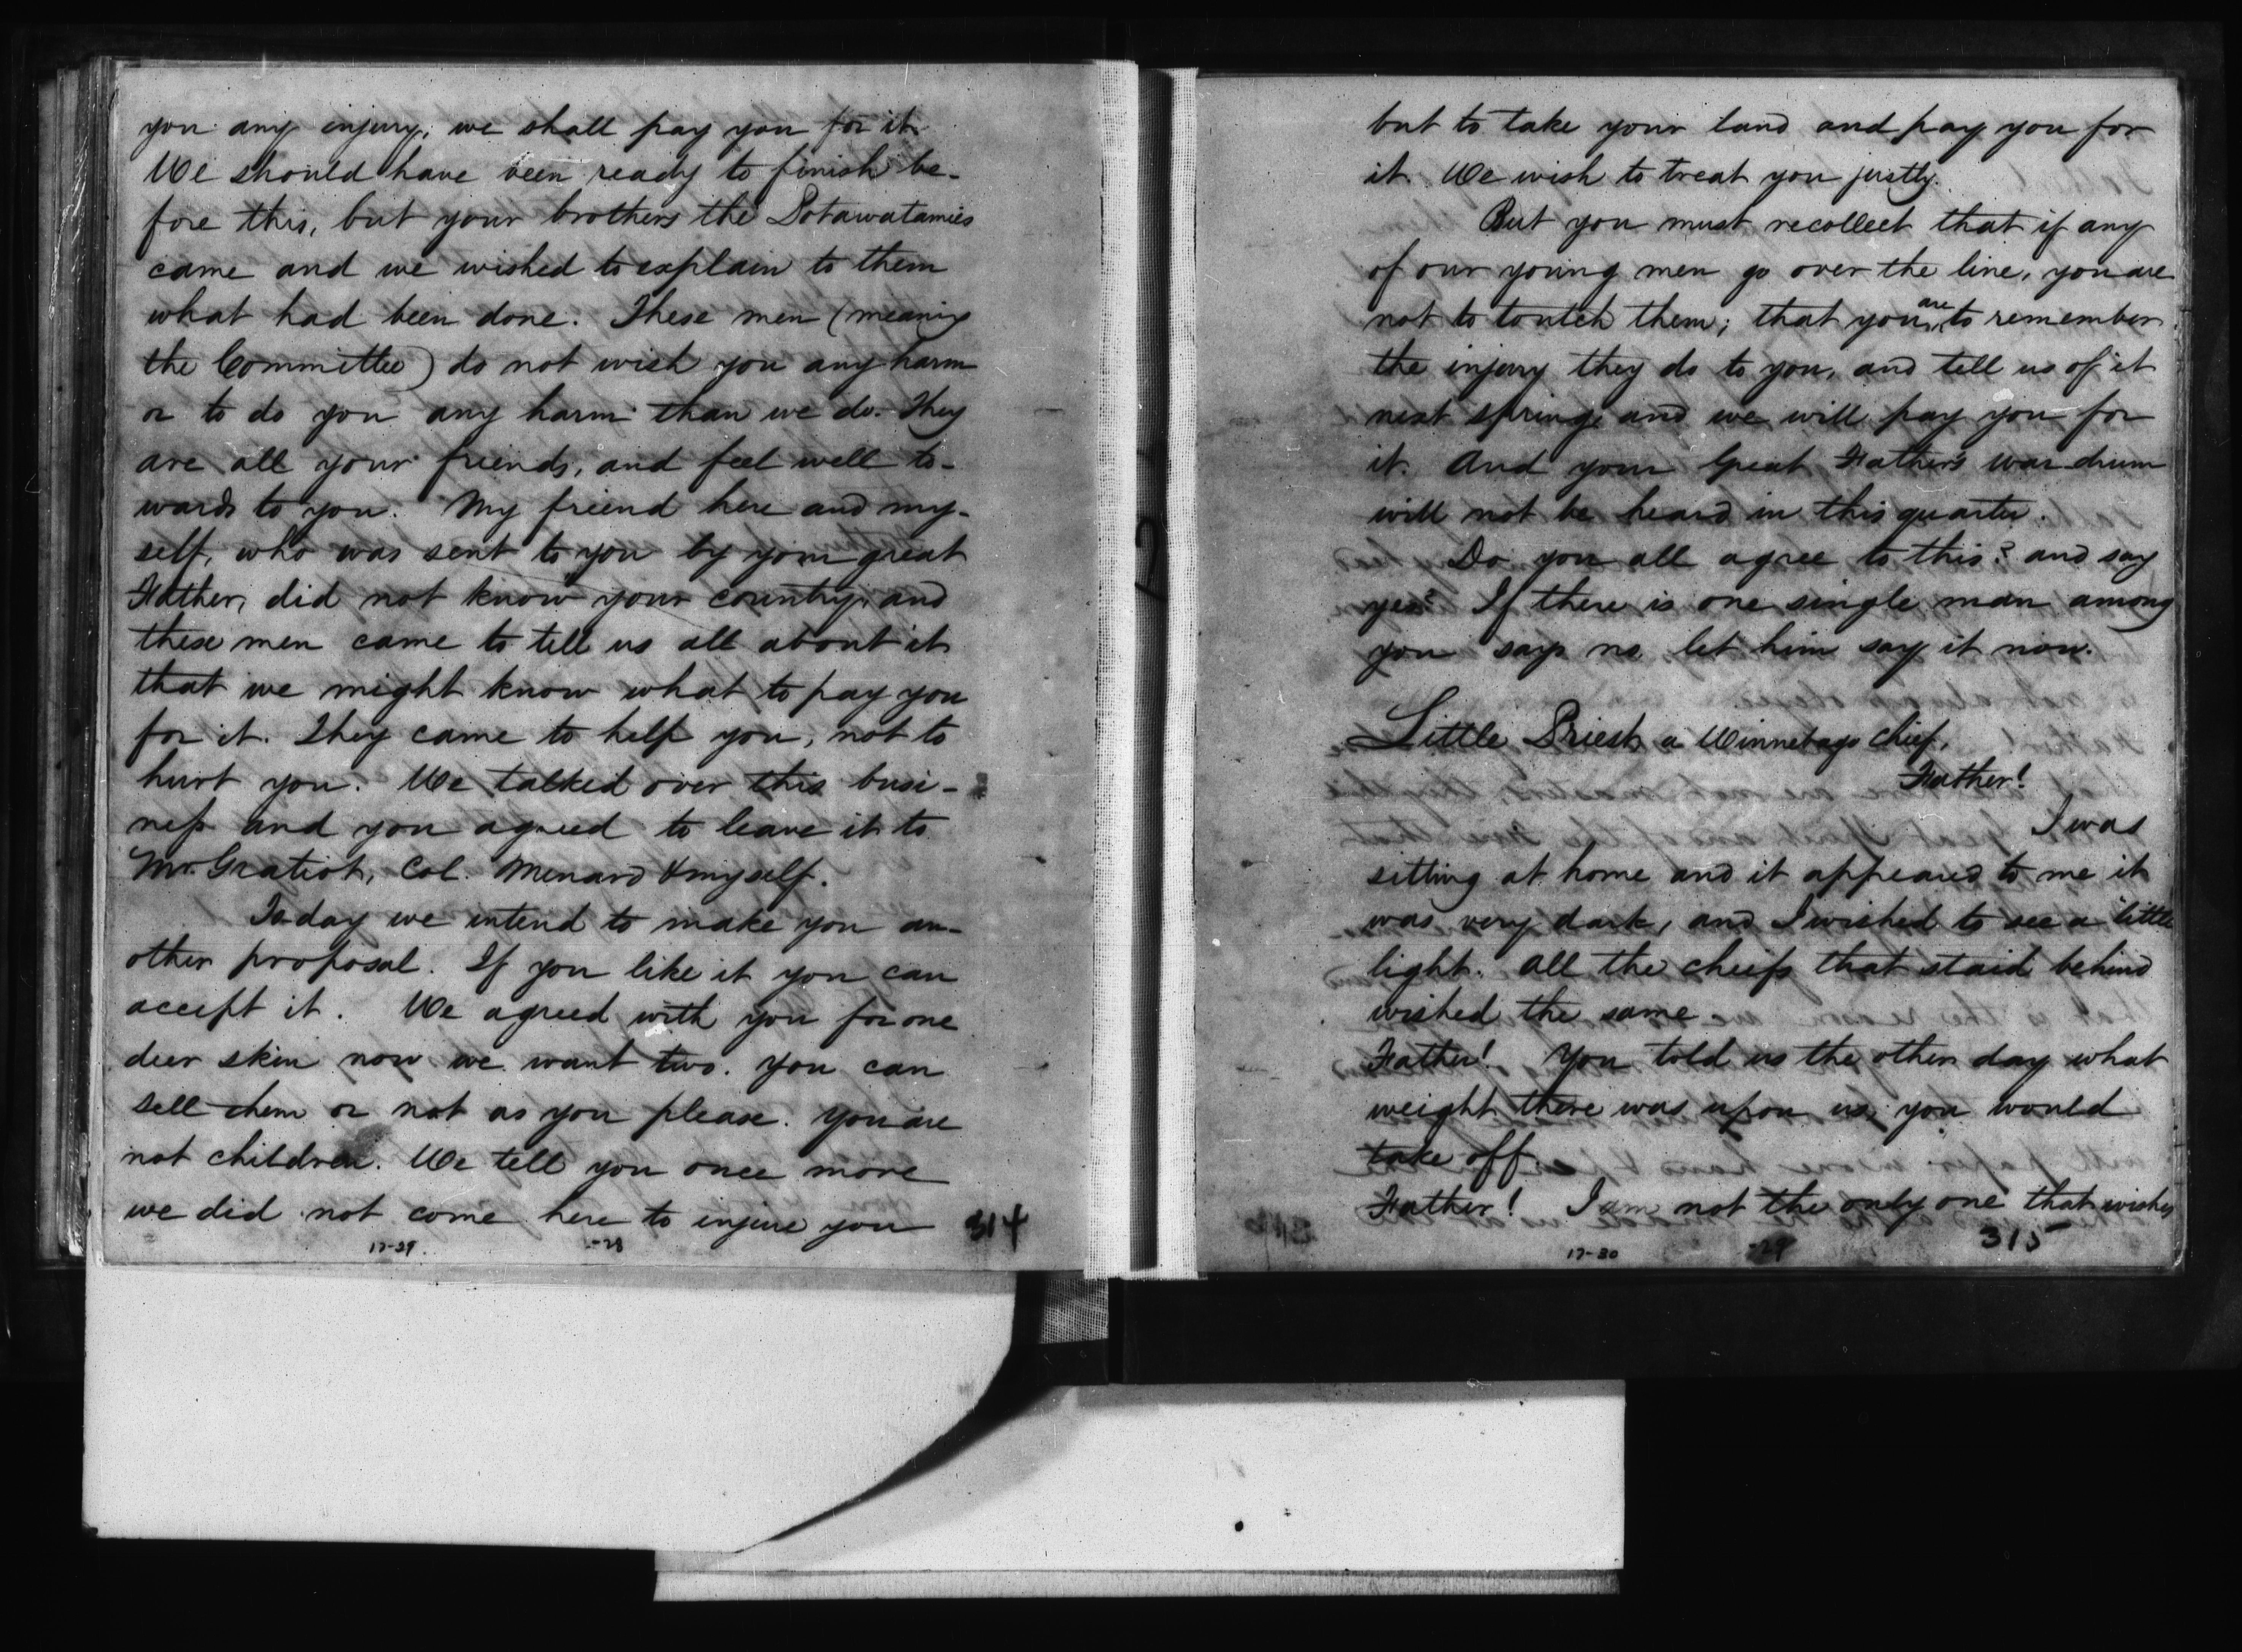 you any injury; we shall pay you for it.
We should have been ready to finish be-
fore this, but your brothers the Potawatamies
came and we wished to explain to them
what had been done. These men (meaning
the Committee) do not wish you any harm
or to do you any harm than we do. They
are all your friends, and feel well to-
wards to you. My friend here and my-
self, who was sent to you by your great
Father, did not know your country, and
these men came to tell us all about it
that we might know what to pay you
for it. They came to help you, not to
hurt you. We talked over this busi-
ness and you agreed to leave it to
Mr. Gratiot, Col. Menard & myself.
To-day we intend to make you an-
other proposal. If you like it you can
accept it. We agreed with you for one
deer skin now we want two. You can
sell them or not as you please. You are
not children. We tell you once more
we did not come here to injure you
314
17-29. -28
but to take your land and pay you for
it. We wish to treat you justly.
But you must recollect that if any
of our young men go over the line, you are
not to toutch them; that you are to remember
the injury they do to you, and tell us of it
next spring, and we will pay you for
it. And your Great Father's war-drum
will not be heard in this quarter.
Do you all agree to this? and say
yes? If there is one single man among
you says no let him say it now.
Little Priest, a Winnebago chief,
Father!
I was
sitting at home and it appeared to me it
was very dark, and I wished to see a little
light. All the cheifs that staid behind
wished the same.
Father! You told us the other day what
weight there was upon us, you would
take off.
Father! I am not the only one that wishes
315
17-30 -29